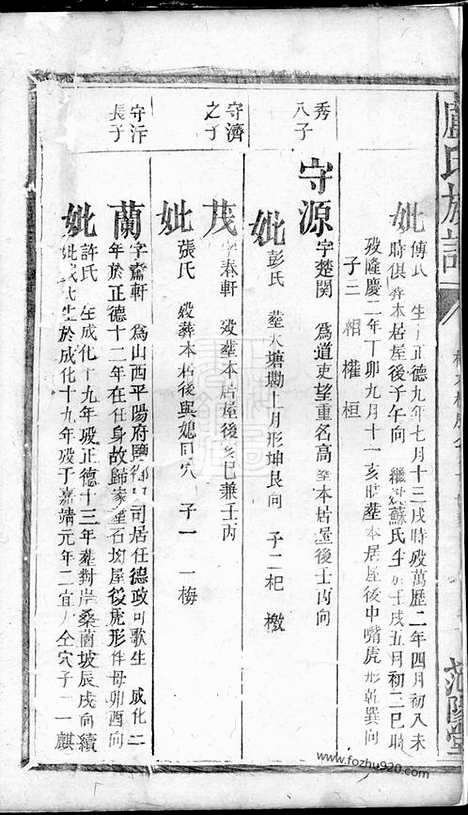 盧氏族譜
范陽堂
妣傅氏 生于正德九年七月十三戌時歿萬歷二年四月初八未
時俱葬本居屋後子午向 繼 蘇氏生 壬戌五月初二巳時
歿隆慶二年丁卯九月十一亥時葬本居屋後中嘴虎形乾巽向
子三 相 權 桓
秀
八子
守源字楚閔 為道吏望重名高 葬本居屋後士丙向
妣彭氏 葬大塘墈上月形坤艮向 子二 杞 檄
守濟
之子
茂字春軒 歿葬本居屋後亥巳兼壬丙
妣張氏 歿葬本居後與媳同穴 子一 一梅
守泞
長子
蘭字齋軒 為山西平陽府 司居任德政可歌生 成化二
年於正德十二年在任身故歸家葬石圳屋後虎形件母卯酉向
妣許氏 在成化十九年歿正德十三年葬對岸桑蘭坡辰戌向續
妣 氏生於成化十九年歿于嘉靖元年二 全穴子二 一麒
www.fozhu920.com